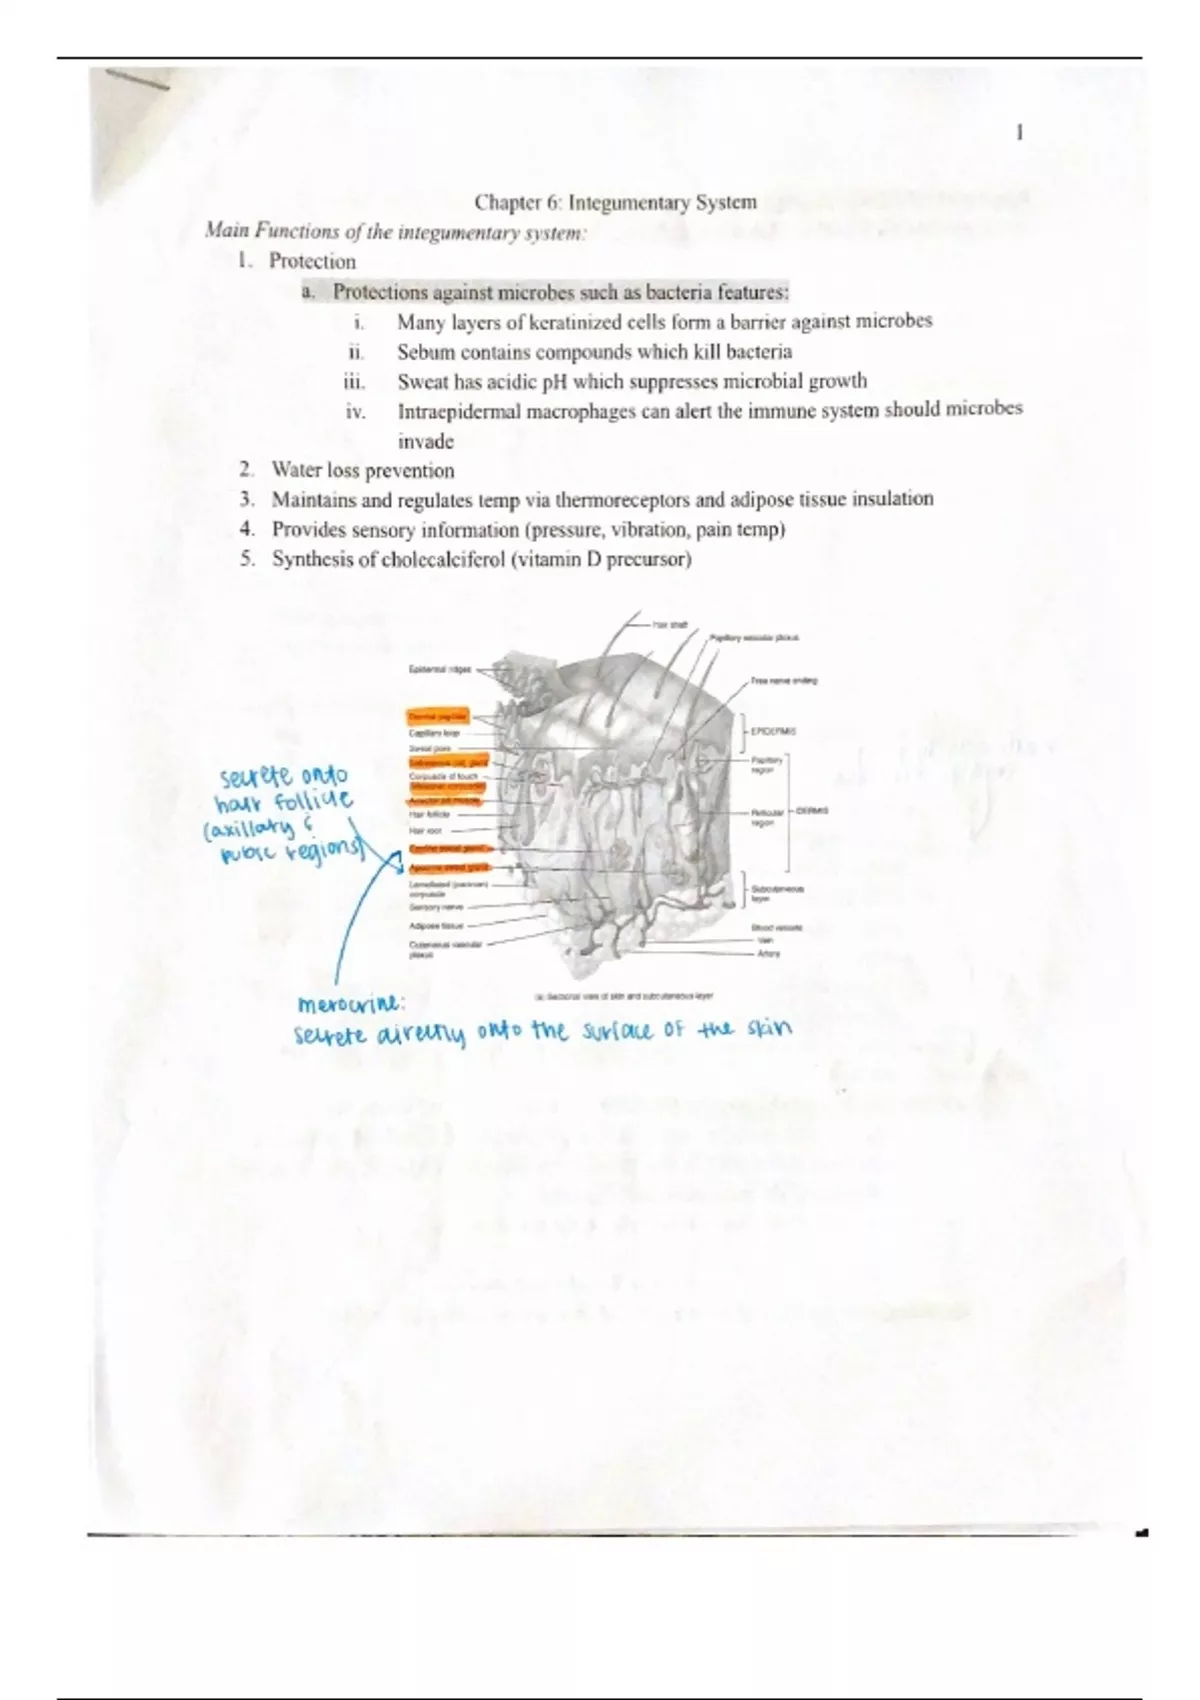 1
Chapter 6: Integumentary System
Main Functions of the integumentary system:
1. Protection
a. Protections against microbes such as bacteria features:
i. Many layers of keratinized cells form a barrier against microbes
ii. Sebum contains compounds which kill bacteria
iii. Sweat has acidic pH which suppresses microbial growth
iv. Intraepidermal macrophages can alert the immune system should microbes
invade
2. Water loss prevention
3. Maintains and regulates temp via thermoreceptors and adipose tissue insulation
4. Provides sensory information (pressure, vibration, pain temp)
5. Synthesis of cholecalciferol (vitamin D precursor)
Hair shaft
Papillary vascular plexus
Epidermal ridges
Free nerve ending
Dermal papillae
Capillary loop
Sweat pore
Sebaceous (oil) gland
Corpuscle of touch
Arrector pili muscle
Hair follicle
Hair root
Eccrine sweat gland
Apocrine sweat gland
Lamellated (pacinian)
corpuscle
Sensory nerve
Adipose tissue
Cutaneous vascular
plexus
EPIDERMIS
Papillary
region
Reticular
region
DERMIS
Subcutaneous
layer
Blood vessels:
Vein
Artery
(a) Sectional view of skin and subcutaneous layer
secrete onto
hair follicle
(axillary &
pubic regions)
merocrine:
secrete directly onto the surface of the skin